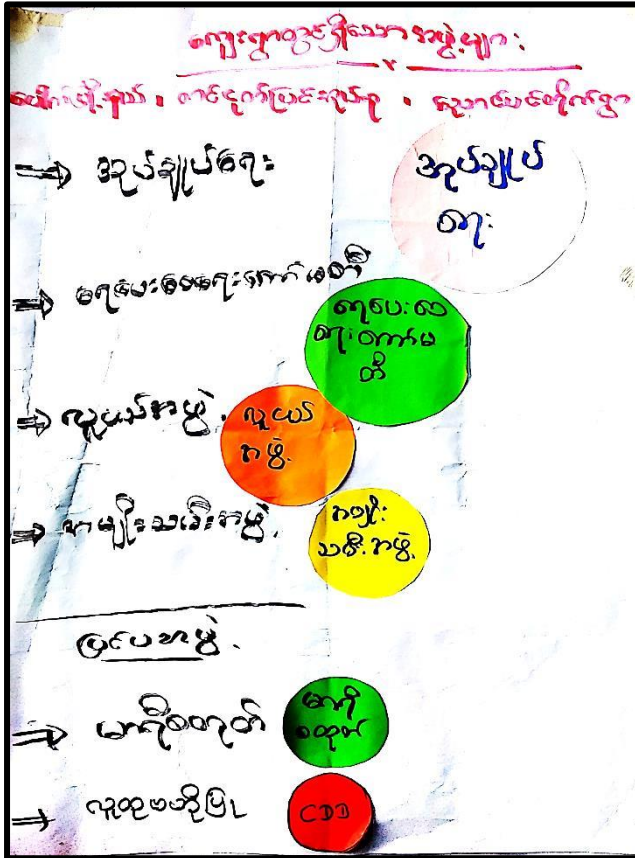 ကျေးရွာတွင်ရှိသော အဖွဲ့များ
ညောင်ပင်တိုက်ရွာ
⇒ အုပ်ချုပ်ရေး
အုပ်ချုပ်
ရေး
⇒ ရေပေးဝေရေးကော်မတီ
ရေပေးဝေ
ရေးကော်မ
တီ
⇒ လူငယ်အဖွဲ့
လူငယ်
အဖွဲ့
⇒ အမျိုးသမီးအဖွဲ့
အမျိုး
သမီးအဖွဲ့
ပြင်ပအဖွဲ့
⇒ မာရီစတုတ်
မာရီ
စတုတ်
→ လူထုဗဟိုပြု
CDD